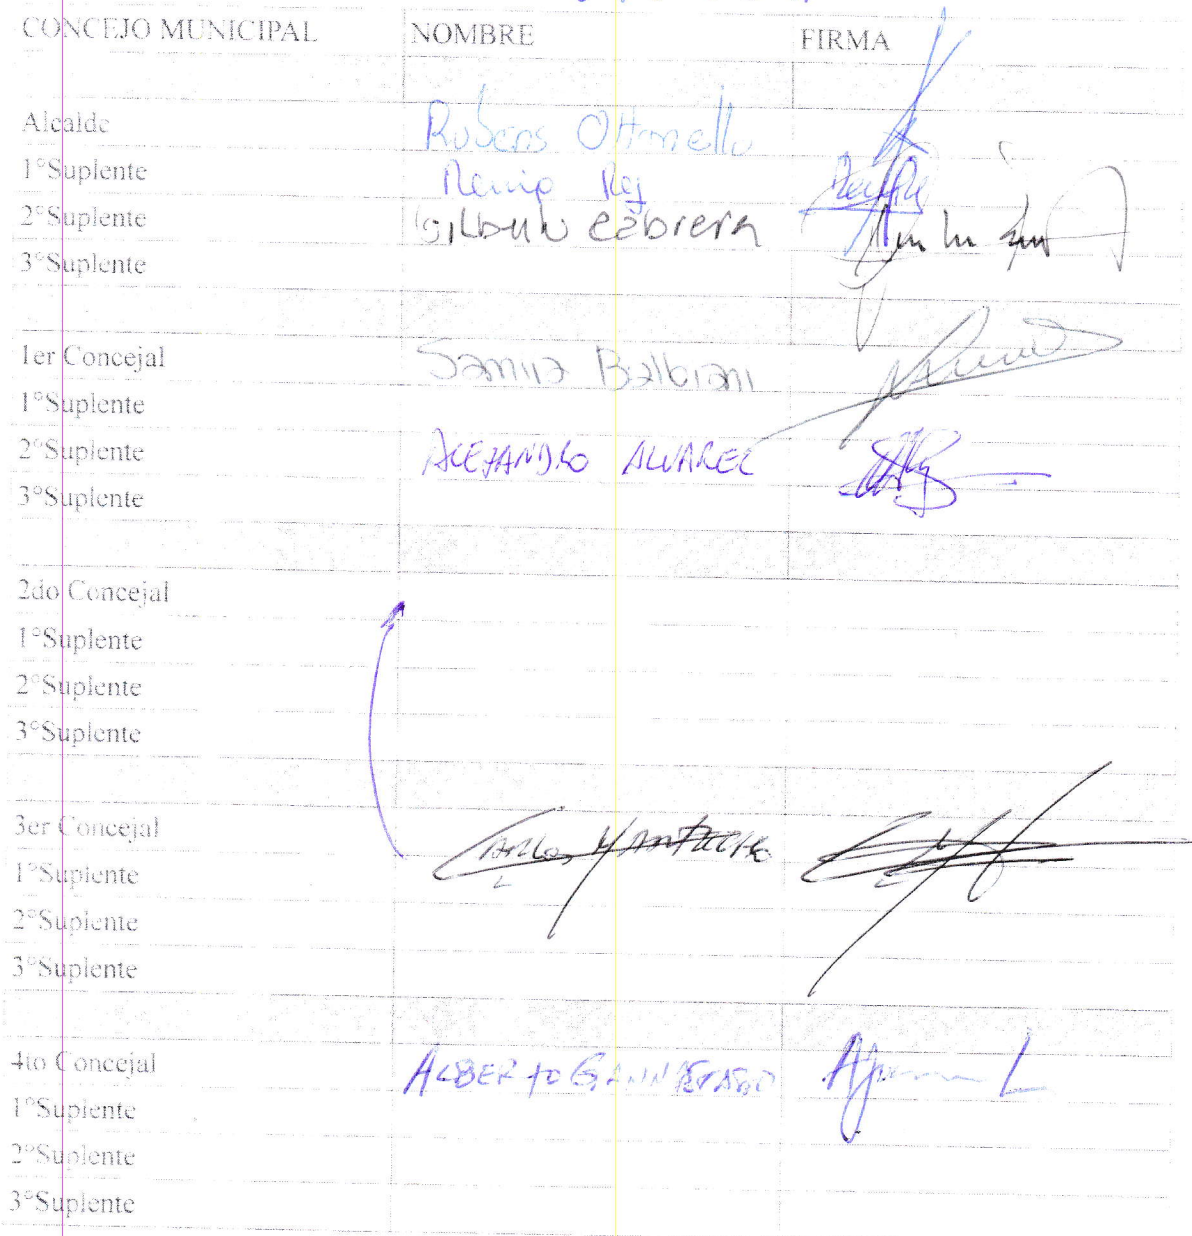 CONCEJO MUNICIPAL NOMBRE FIRMA
Alcalde Rubens Ottonello
1°Suplente Remip Rey
2°Suplente Gilberto Cabrera
3°Suplente
1er Concejal Samira Balbiani
1°Suplente
2°Suplente ALEJANDRO ALVAREZ
3°Suplente
2do Concejal
1°Suplente
2°Suplente
3°Suplente
3er Concejal Carlos
1°Suplente
2°Suplente
3°Suplente
4to Concejal ALBERTO
1°Suplente
2°Suplente
3°Suplente